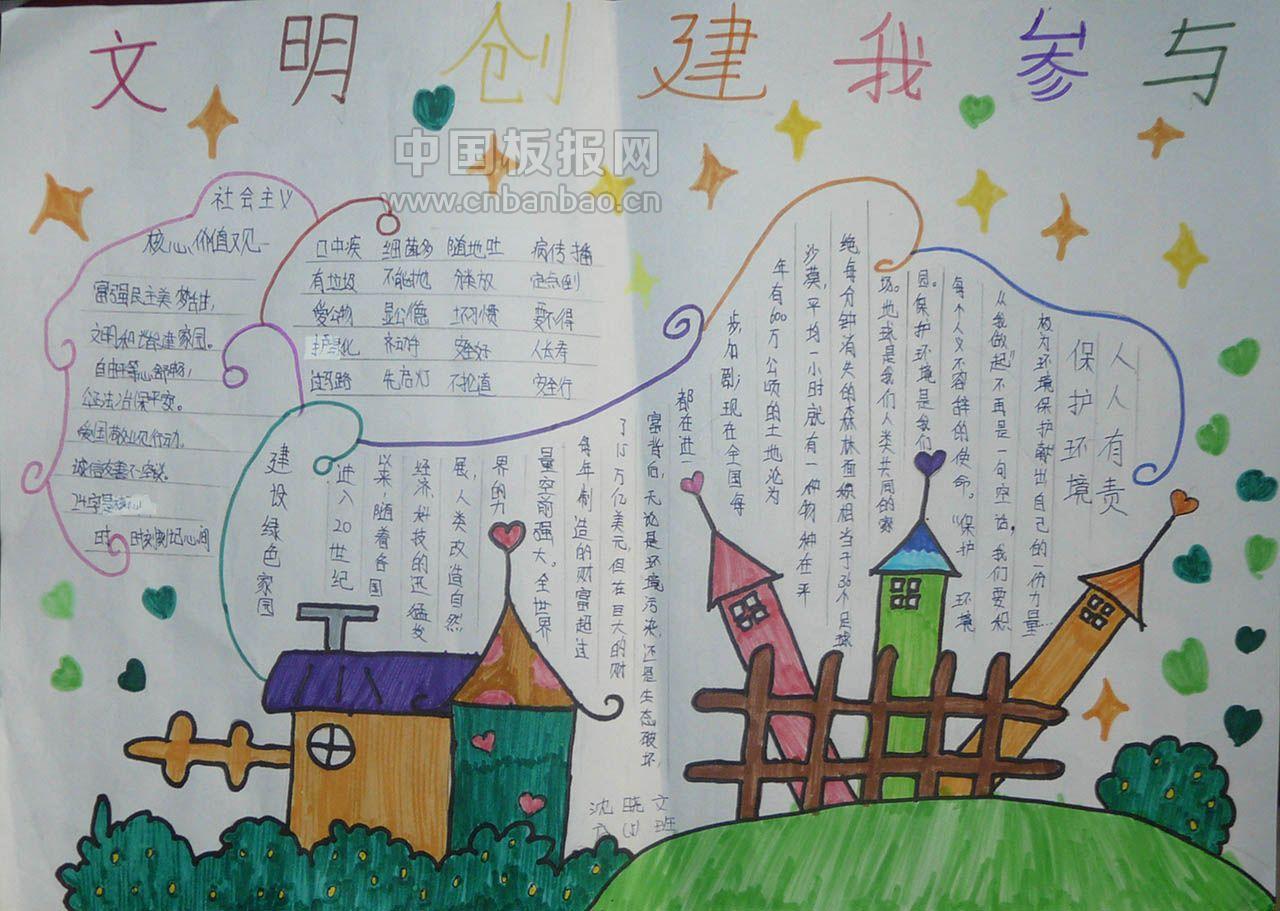 文明创建我参与
中国板报网
www.cnbanbao.cn
社会主义
核心价值观
富强民主美梦出,
文明和谐建家园。
公正法治保平安。
爱国敬业见行动,
诚信友善不空谈。
24字是
时时刻刻记心间
口中痰 细菌多 随地吐 病传播
有垃圾 不能抛 定点倒
爱公物 显公德 坏习惯 要不得
护绿化
过马路 先看灯 不抢道 安全行
建设绿色家园
进入20世纪
以来,随着各国
经济,科技的迅猛发
展,人类改造自然
界的力
量空前强大。全世界
每年制造的财富超过
了15万亿美元,但在巨大的财
富背后,无论是环境污染,还是生态破坏,
都在进一
步加剧;现在全国每
年有600万公顷的土地沦为
沙漠,平均一小时就有一种物种在平
绝每分钟消失的森林面积相当于36个足球
场。地球是我们人类共同的家
园。保护环境是我们
每个人义不容辞的使命。“保护环境
从我做起”不再是一句空话,我们要积
极为环境保护献出自己的一份力量…
保护环境
人人有责
沈晓文
六(5)班